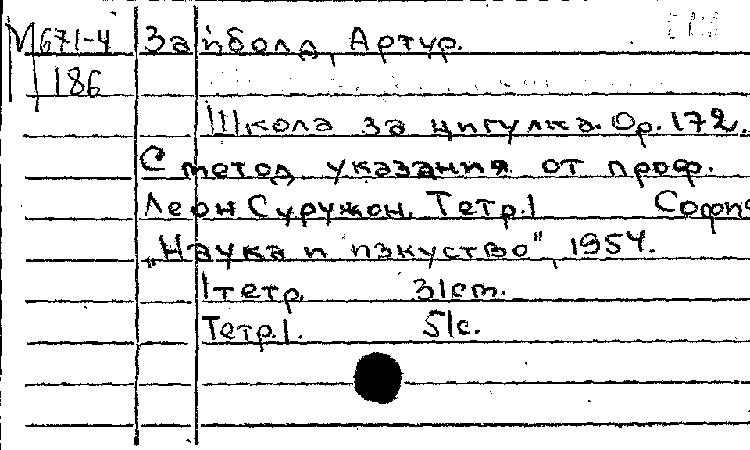 М 671-4
186
Зайболд, Артур.
Школа за цигулка. Ор. 172.
С метод. указания от проф.
Леон Суружон. Тетр. 1 София
„Наука и изкуство", 1954.
1 тетр. 31 cm.
Тетр. 1. 51 с.